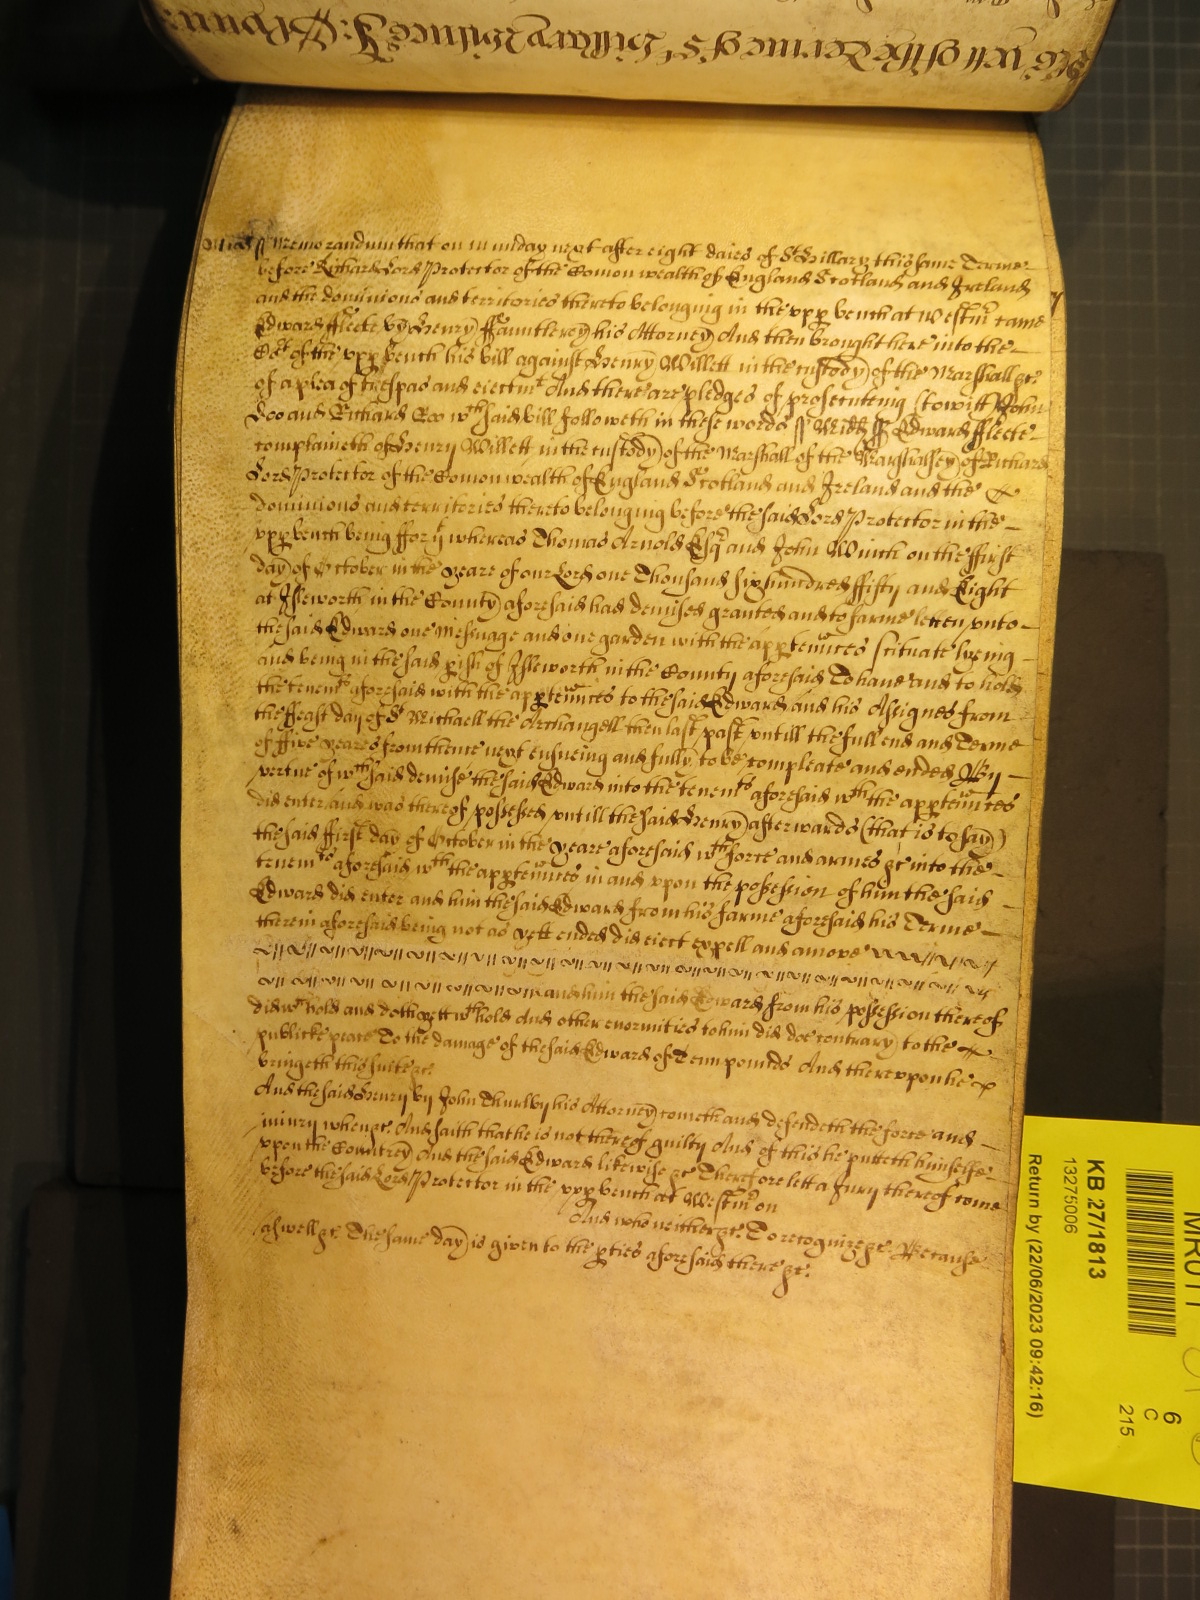 Midd ss Memorandum that on munday next after eight daies of St Hillary this same Terme
before Richard Lord Protector of the Comon wealth of England Scotland and Ireland
and the dominions and territories thereto belonging in the upp bench at Westmr came
Edward fflecte by Henry ffauntlerey his Attorney And then brought here into the
Cort of the upp bench his bill against Henry Willett in the custody of the Marshall &c.
of a plea of trespas and eiectmt And there are pledges of prosecuteing (towitt) John
Doo and Richard Roo wch said bill followeth in these words ss Midds ss Edward fflecte
complaineth of Henry Willett in the custody of the Marshall of the Marshallsey of Richard
Lord Protector of the Comon wealth of England Scotland and Ireland and the
dominions and territories thereto belonging before the said Lord Protector in the
upp bench being ffor yt whereas Thomas Arnold Esqr and John Winch on the ffirst
day of October in the yeare of our Lord one Thousand six hundred ffifty and Eight
at Isleworth in the County aforesaid had demised granted and to farme letten unto
the said Edward one Messuage and one garden with the apptennces scituate lyeing
and being in the said pish of Isleworth in the County aforesaid To have and to hold
the tenemts aforesaid with the apptennces to the said Edward and his Assignes from
the ffeast day of St Michaell the Archangell then last past untill the full end and Terme
of ffive yeares from thence next ensueing and fully to be compleate and ended By
vertue of wch said demise the said Edward into the tenemts aforesaid wth the apptennces
did enter and was thereof possessed untill the said Henry afterwards (that is to say)
the said ffirst day of October in the yeare aforesaid wth force and armes &c into the
tenemts aforesaid wth the apptennces in and upon the possession of him the said
Edward did enter and him the said Edward from his farme aforesaid his Terme
therein aforesaid being not as yett ended did eiect expell and amove
and him the said Edward from his possession thereof
did wthhold and doth yett wthhold And other enormities to him did doe contrary to the
publicke peace To the damage of the said Edward of Tenn pounds And thereupon he
bringeth this suite &c.
And the said Henry by John Thurlby his Attorney cometh and defendeth the force and
iniury when &c. And saith that he is not thereof guilty And of this he putteth himselfe
upon the Countrey And the said Edward likewise &c. Therefore lett a Jury thereof come
before the said Lord Protector in the upp bench at Westmr on
And who neither &c. To recognize &c. Because
aswell &c. The same day is given to the pties aforesaid there &c.
KB 27/1813
13275006
Return by (22/06/2023 09:42:16)
6
C
215